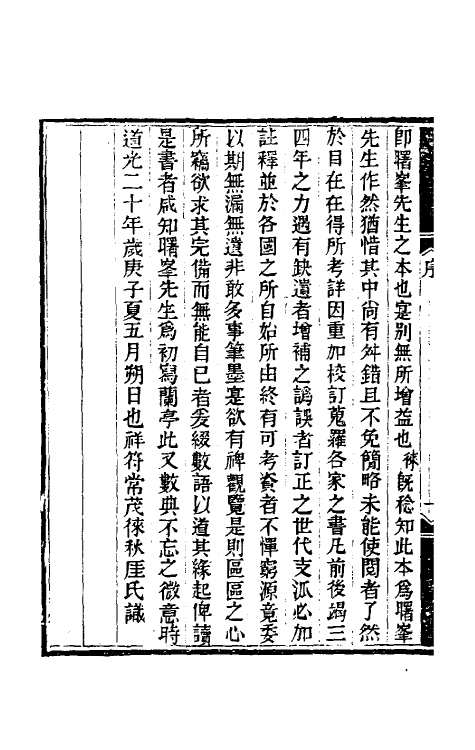 序
卽曙峯先生之本也寔别無所增益也徠旣稔知此本爲曙峯
先生作然猶惜其中尙有舛錯且不免簡略未能使閱者了然
於目在在得所考詳因重加校訂蒐羅各家之書凡前後竭三
四年之力遇有缺遺者增補之譌誤者訂正之世代支派必加
註釋並於各國之所自始所由終有可考資者不憚窮源竟委
以期無漏無遺非敢多事筆墨寔欲有裨觀覽是則區區之心
所竊欲求其完備而無能自已者爰綴數語以道其緣起俾讀
是書者咸知曙峯先生爲初寫蘭亭此又數典不忘之微意時
道光二十年歲庚子夏五月朔日也祥符常茂徠秋厓氏識